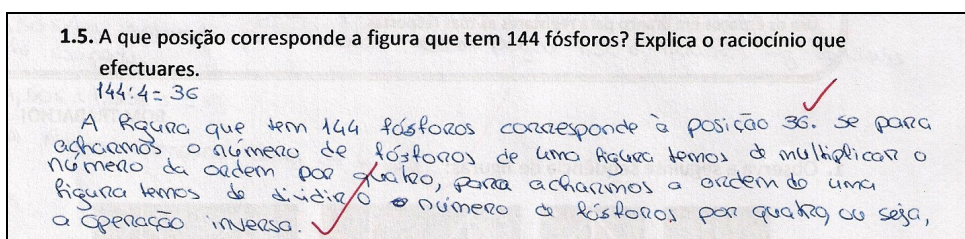 1.5. A que posição corresponde a figura que tem 144 fósforos? Explica o raciocínio que
efectuares.
144:4=36
A figura que tem 144 fósforos corresponde à posição 36. Se para
acharmos o número de fósforos de uma figura temos de multiplicar o
número da ordem por quatro, para acharmos a ordem de uma
figura temos de dividir o número de fósforos por quatro, ou seja,
a operação inversa.